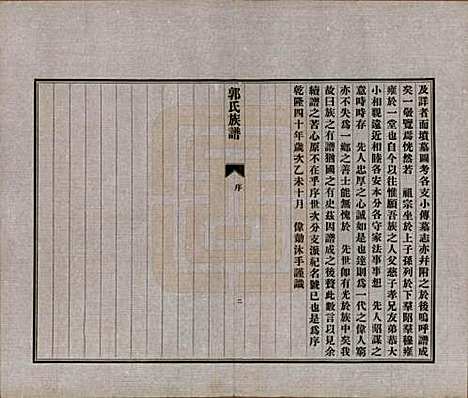 及詳者面墳墓圖考各支小傳墓志亦幷附之於後嗚呼譜成
矣一啟覽焉恍然若　祖宗坐於上子孫列於下羣昭羣穆雍
雍於一堂也自今以往惟願吾族之人父慈子孝兄友弟恭大
小相親遠近相睦各安本分各守家法事事想　先人昭謀之
意時時存　先人忠厚之心誠如是也達則爲一代之偉人窮
亦不失爲一鄉之善士能無愧於　先世卽有光於族中矣我
故曰族之有譜猶國之有史茲因譜成之後贅此數言以見余
續譜之苦心原不在乎序世次分支派紀名號已也是爲序
乾隆四十年歲次乙未十月　偉勳沐手謹識
郭氏族譜
序
二